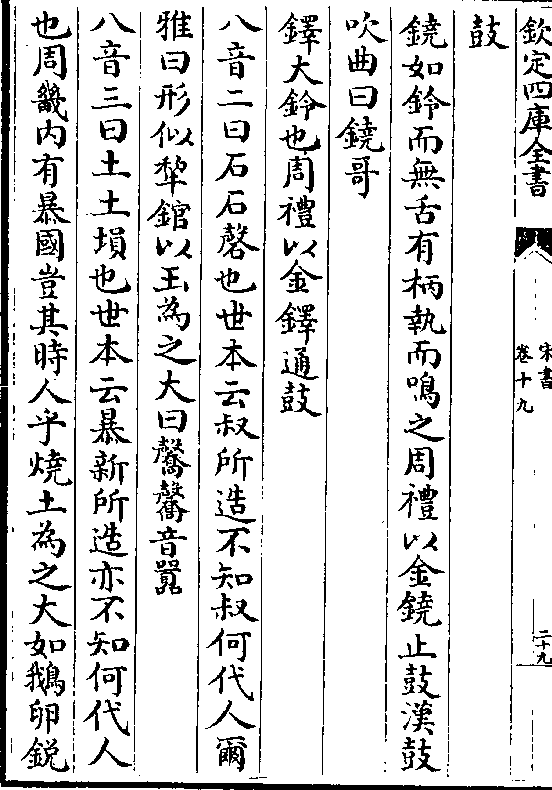 欽定四庫全書
宋書
卷十九
二十九
鼓
鐃如鈴而無舌有柄執而鳴之周禮以金鐃止鼓漢鼓
吹曲曰鐃哥
鐸大鈴也周禮以金鐸通鼓
八音二曰石石磬也世本云叔所造不知叔何代人爾
雅曰形似犂錧以玉為之大曰毊毊音嚻
八音三曰土土塤也世本云暴新所造亦不知何代人
也周畿内有暴國豈其時人乎燒土為之大如鵝卵銳